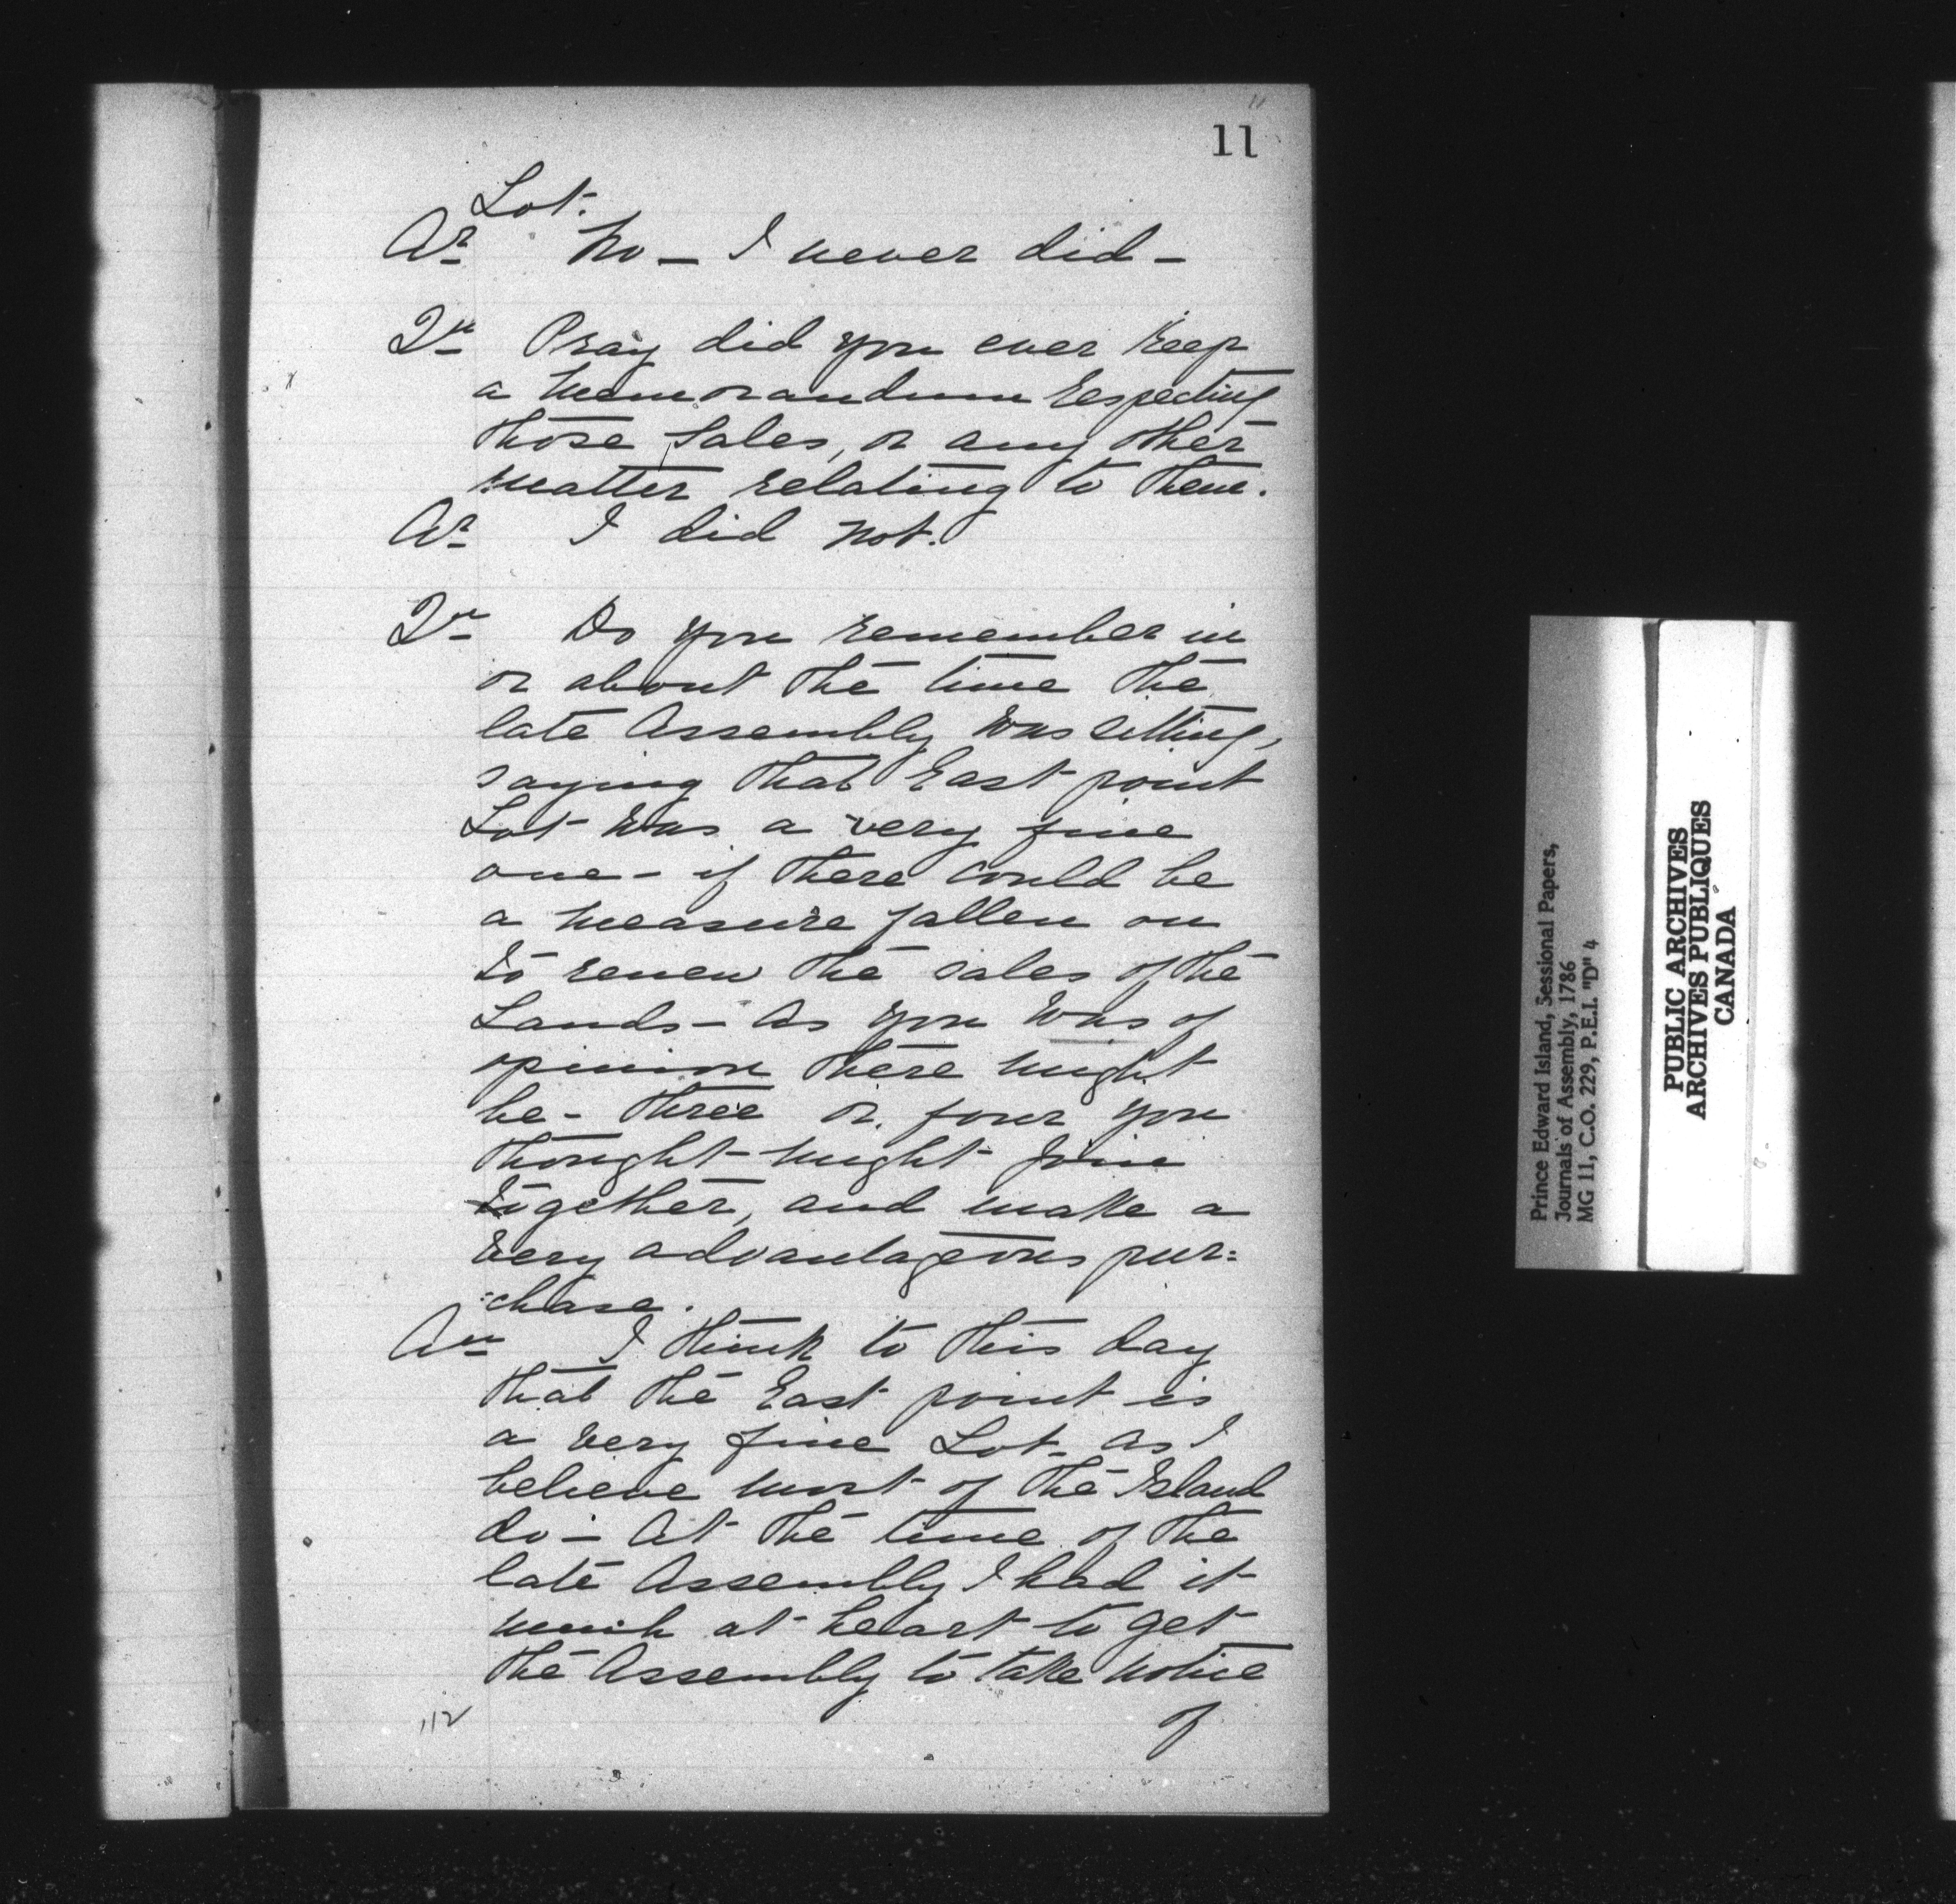 11
Lot.
Ar No – I never did –
Qn Pray did you ever keep
a Memorandum Respecting
those Sales, or any other
matter relating to them.
Ar I did not.
Qn Do you remember in
or about the time the
late Assembly was sitting,
saying that East point
Lot was a very fine
one – if there could be
a measure fallen on
to renew the sales of the
Lands – as you was of
opinion there might
be – three or four you
thought might join
together, and make a
very advantageous pur=
=chase.
An I think to this day
that the East point is
a very fine Lot – as I
believe most of the Island
do – At the time of the
late Assembly I had it
much at heart to get
the Assembly to take notice
of
112
Prince Edward Island, Sessional Papers,
Journals of Assembly, 1786
MG 11, C.O. 229, P.E.I. "D" 4
PUBLIC ARCHIVES
ARCHIVES PUBLIQUES
CANADA